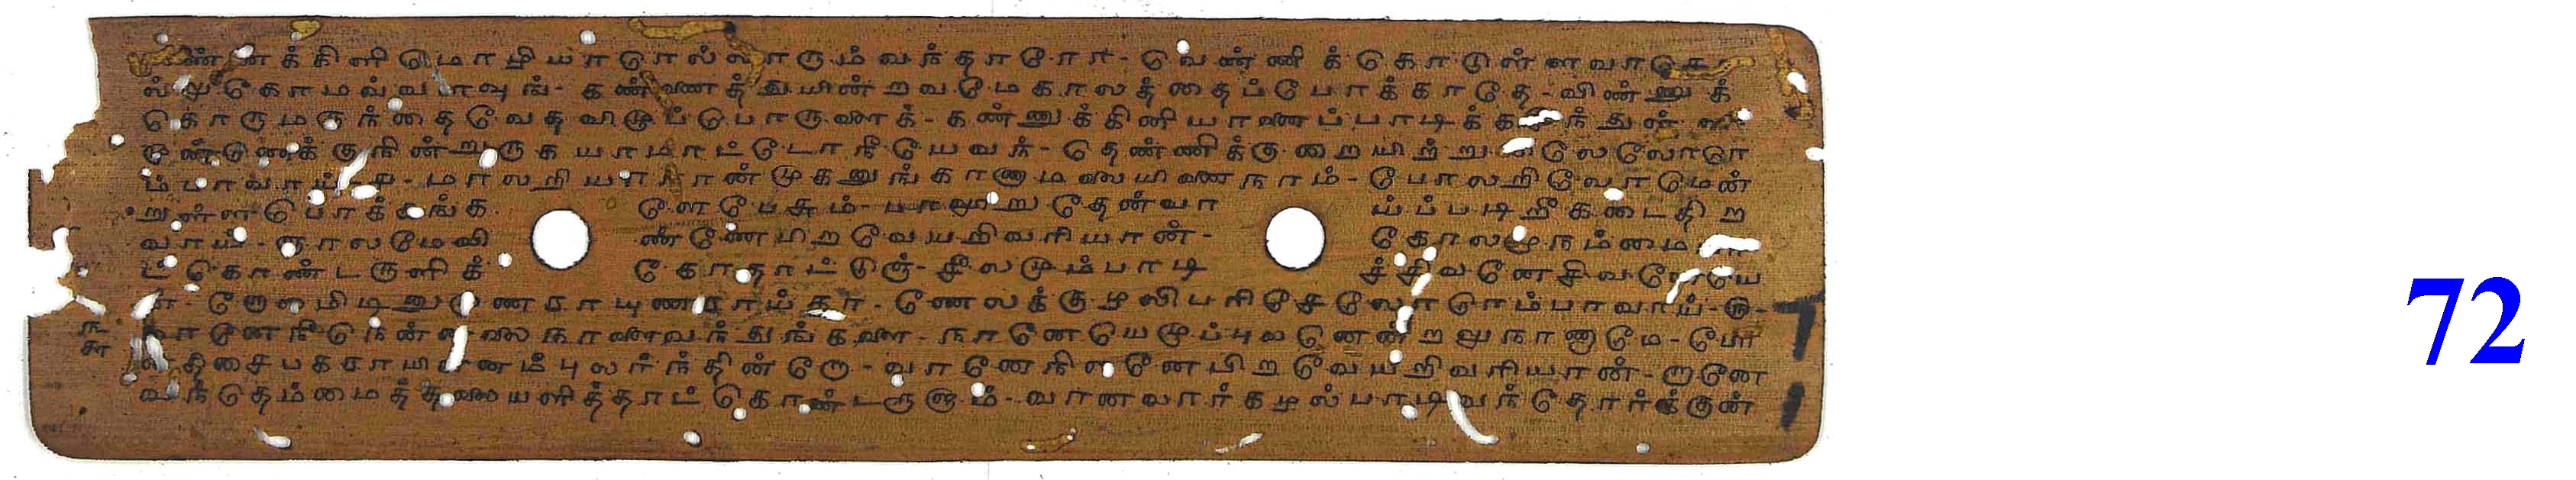 ண்ணக்கிளிமொழியாரெல்லாரும்வந்தாரோ - வெண்ணிக்கொடுள்ளவாசொ
ல்லுகோமவ்வளவுங் - கண்ணைத்துயின்றவமேகாலத்தைப்போக்காதே - விண்ணுக்
கொருமருந்தைவேதவிழுப்பொருளைக் - கண்ணுக்கினியானைப்பாடிக்கசிந்துள்ள
முண்ணெக்குநின்றுருகயாமாட்டோநீயேவந் - தெண்ணிக்குறையிற்று லேலோரெ
ம்பாவாய் - ச - மாலறியாநான்முகனுங்காணாமலையினைநாம் - போலறிவோமென்
றுள்ளபொக்கங்க ளேபேசும் - பாலூறுதேன்வா ய்ப்படிறீகடைதிற
வாய் - ஞாலமேவி ண்ணேபிறவேயறிவரியான் - கோலமுநம்மை
ட்கொண்டருளிக் கோதாட்டுஞ் - சீலமும்பாடி ச்சிவனேசிவனேயெ
ன் - றோலமிடினுமுணராயுணராய்கா - ணேலக்குழலிபரிசேலோரெம்பாவாய் - ரு -
மானேநீநென்னலைநாளைவந்துங்களை - நானேயெழுப்புவனென்றலுநாணாமே - போ
னதிசைபகராயின்னம்புலர்ந்தின்றோ - வானேநிலனேபிறவேயறிவரியான் - றானே
வந்தெம்மைத்தலையளித்தாட்கொண்டருளும் - வானவார்கழல்பாடிவந்தோர்க்குன்
72